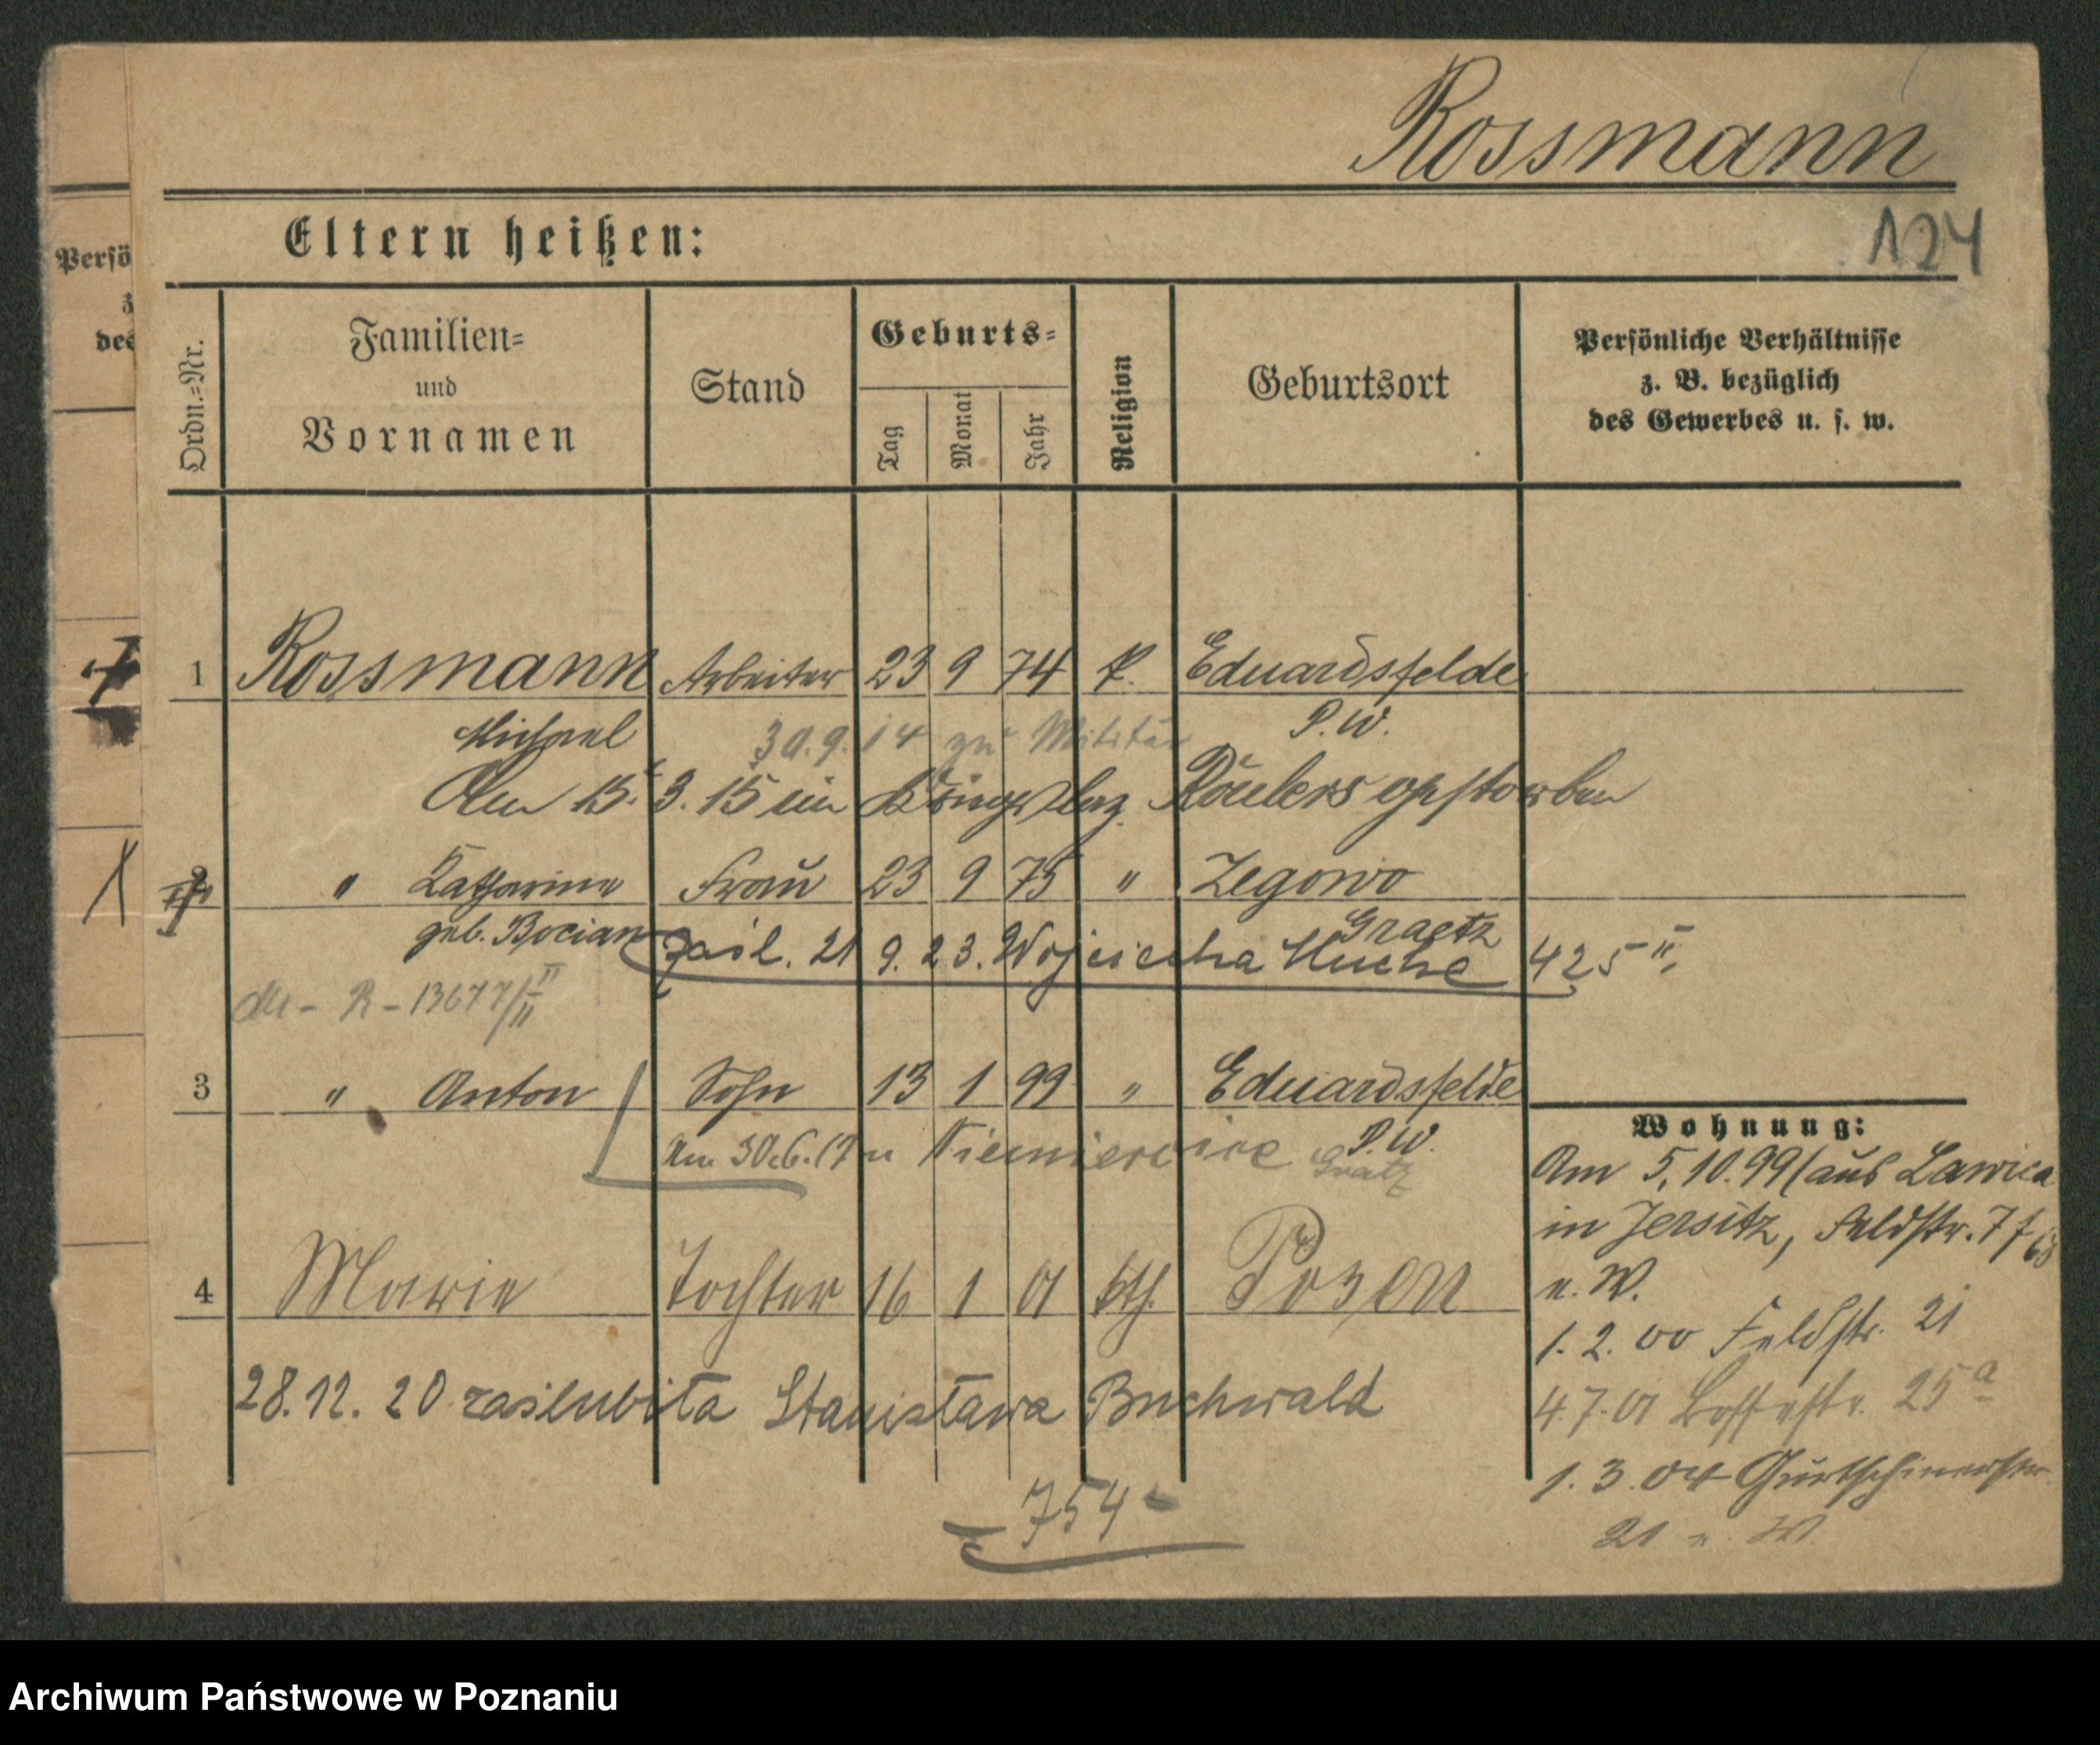 Rossmann
Eltern heißen:
124
Persö
z
des
Ordn.=Nr.
Familien=
und
Vornamen
Stand
Geburts=
Tag
Monat
Jahr
Religion
Geburtsort
Persönliche Verhältnisse
z. B. bezüglich
des Gewerbes u. s. w.
1 Rossmann Arbeiter 23 9 74 k. Eduardsfelde
Michael 30.9.14 zu Militär P.W.
Am 15. 3. 15 im gestorben
2 " Katharina Frau 23 9 75 " Zegowo
geb. Bocian Graetz
zaśl. 21 9. 23. Wojciecha 425 II
R - 13677/II
3 " Anton Sohn 13 1 99 " Eduardsfelde
P.W.
Am 30.6.17 n Graetz
4 Marie Tochter 16 1 01 kth. Posen
28.12.20 zaślubiła Stanisława Buchwald
754
Wohnung:
Am 5.10.99 (aus Lawica
in Jersitz, Feldstr. 7
n. W.
1. 2. 00 Feldstr. 21
4.7.01 25a
1. 3. 04 Gurtschinerstr.
21 n. W.
Archiwum Państwowe w Poznaniu